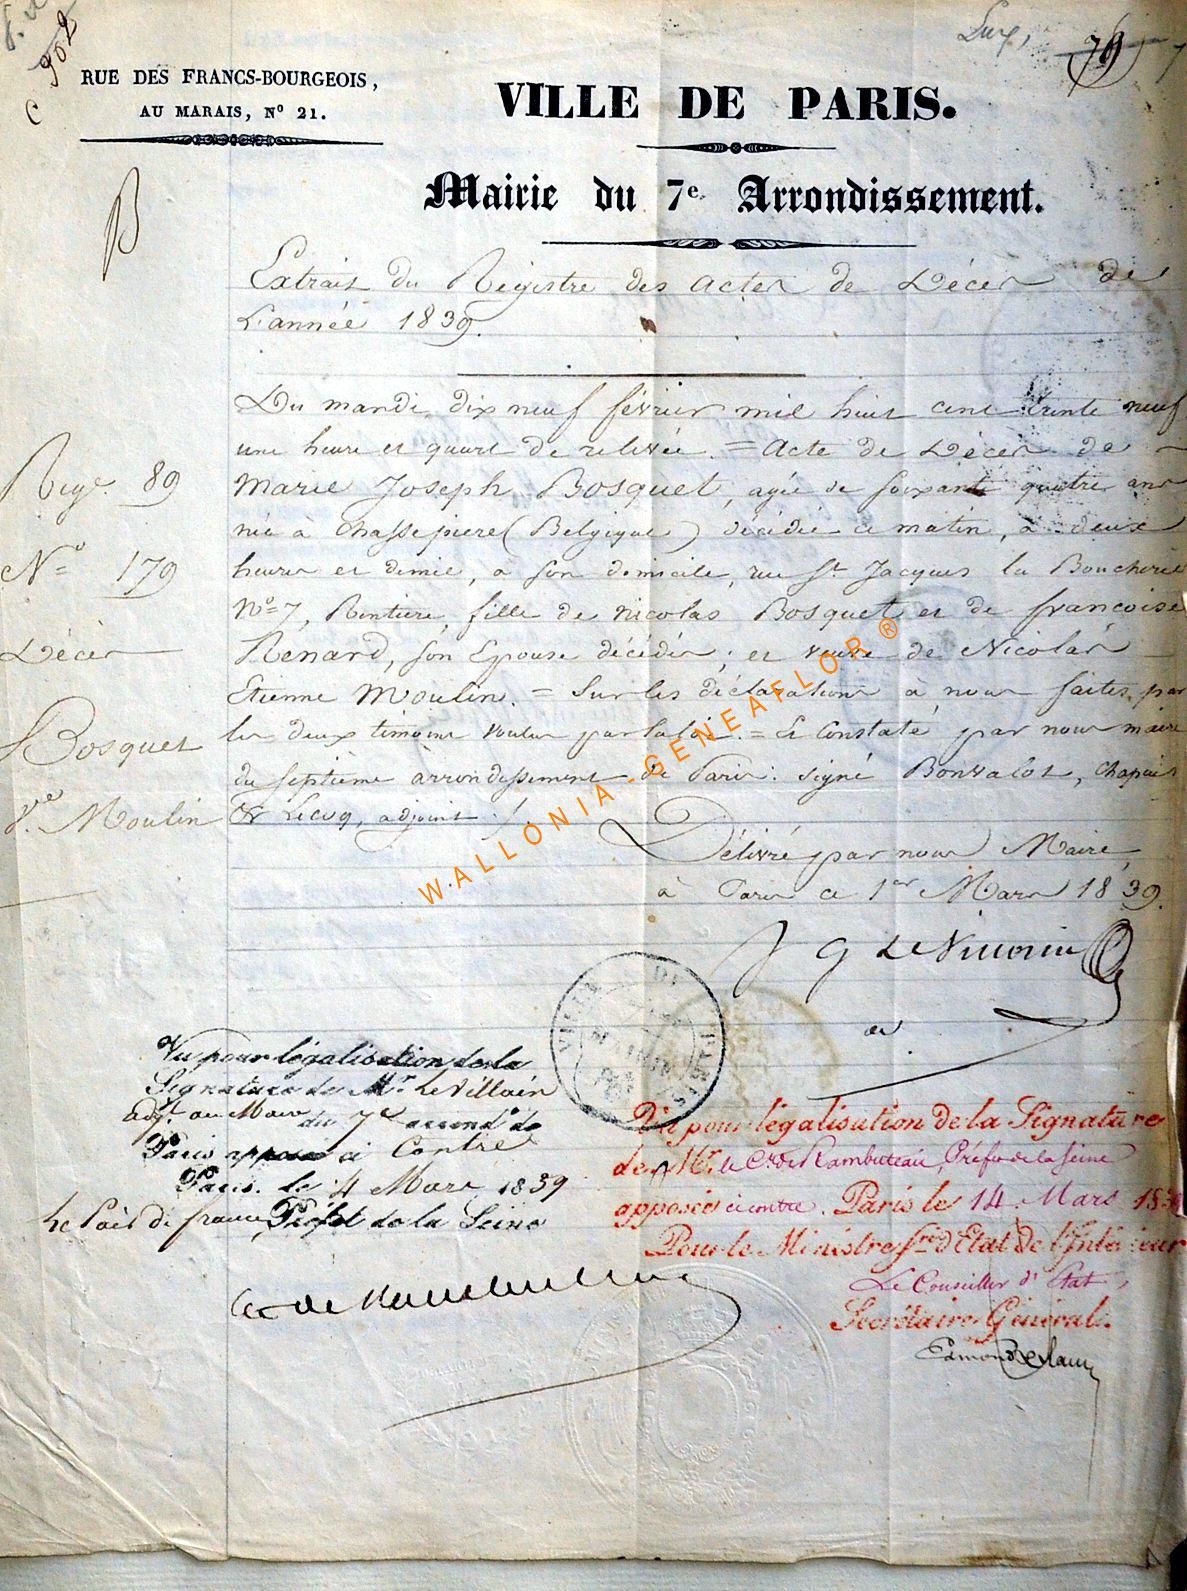 C 902
Lux,
79
7
RUE DES FRANCS-BOURGEOIS,
AU MARAIS, Nº 21.
VILLE DE PARIS.
Mairie du 7e Arrondissement.
B
Extrait du Registre des actes de Décès de
L'année 1839.
Du mardi dix neuf février mil huit cent trente neuf
une heure et quart de relevée. = acte de Décès de
Marie Joseph Bosquet, agée de soixante quatre ans
née à Chassepierre (Belgique) décédée ce matin, à deux
heures et demie, à son domicile, rue St Jacques la Boucherie
No= 7, Rentiere, fille de Nicolas Bosquet et de françoise
Renard, son Epouse décédés; et veuve de Nicolas
Etienne Moulin. = Sur les déclarations à nous faites par
les deux témoins voulus par la loi. = Et Constaté par nous maire
du septième arrondissement de Paris: signé Bonvalot, Chapuis
& Lecuq, adjoint.
Rege. 89
No= 179
Décès
Bosquet
Vve Moulin
Délivré par nous Maire,
à Paris ce 1er Mars 1839.
VILLE DE PARIS
Vu pour légalisation de la
Signature de Mr Le Villain
adjt. au Maire du 7e arrond. de
Paris apposée ci Contre
Paris. le 4 Mars 1839
Le Pair de france, Préfet de la Seine
Cte de Rambuteau
Vu pour légalisation de la Signature
de Mr. le Cte de Rambuteau, Préfet de la Seine
apposée ci contre. Paris le 14 Mars 1839
Pour le Ministre Sre d'Etat de l'Intérieur
Le Conseiller d'Etat,
Secrétaire Général.
Edmond Blanc
WALLONIA-GENEAFLOR®